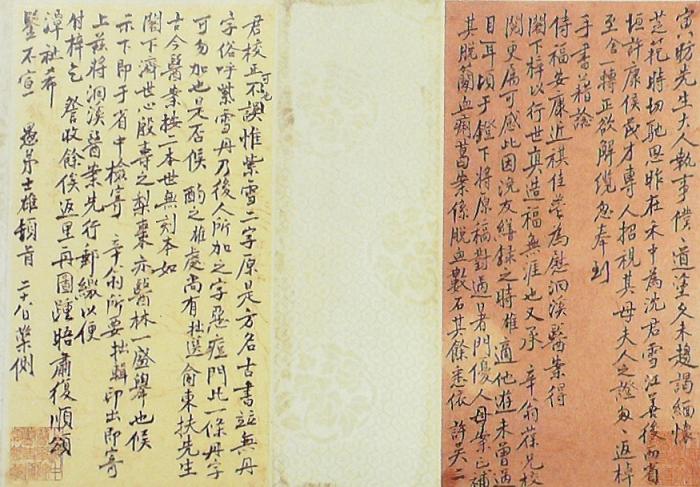 寅昉先生大人執事僕一道塗久未趨謁緬懷
芝範時切馳思昨在禾中為沈君雪江善後而省
垣許康侯茂才專人招視其母夫人之證匆匆返棹
至舍一轉正欲解纜忽奉到
手書藉諗
侍福安康近祺佳鬯為慰洄溪醫案得
閣下梓以行世真造福無涯也又承辛翁葆兄校
閱更屬可感此因浼友繕錄之時雄適他遊未曾過
目耳頃于鐙下將原福對過婦門優人母案已補
其脫簡血痢葛案係脫血數石其餘悉依許吳二
君校正可也不誤惟紫雪二字原是方名古書並無丹
字俗呼紫雪丹乃後人所加之字惡痘門此一條丹字
可勿加也是否候酌之雄處尚有拙選俞東扶先生
古今醫案按一本世無刻本如
閣下濟世心殷壽之梨棗亦醫林一盛舉也候
示下即于省中檢寄辛翁所要拙輯印出即寄
上茲將洄溪醫案先行郵繳以便
付梓乞詧收餘俟返里再圖踵晤肅復順頌
潭祉希
鑒不宣 愚弟士雄頓首 二十八日藥側